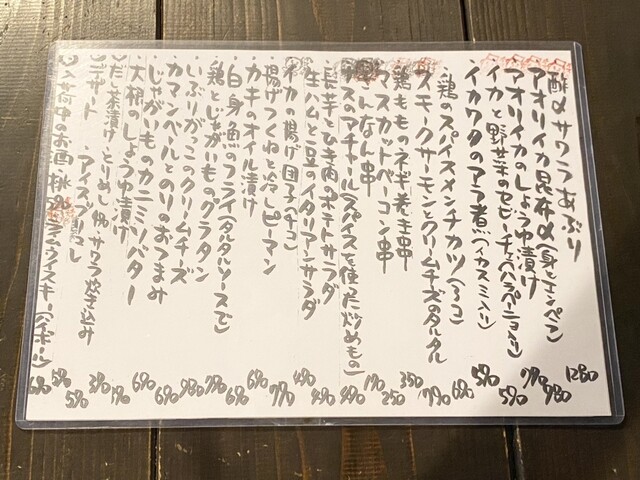 酢〆サワラあぶり 1280
アオリイカ昆布〆(身とエンペラ) 980
アオリイカのしょうゆ漬け 790
イカと野菜のセビーチェ(ハラペーニョ入り) 590
・イカワタのアラ煮(イカスミ入り) 590
・鶏のスパイスメンチカツ(2コ) 690
スモークサーモンとクリームチーズのタルタル 790
鶏もものネギ巻き串 350
マスカットベーコン串 250
ぎんなん串 190
ナスのアチャール(スパイスを使った炒めもの) 490
・長芋とひき肉のポテトサラダ 490
生ハムと豆のイタリアンサラダ 490
イカの揚げ団子(4コ) 790
揚げつくねと冷しピーマン 690
カキのオイル漬け 690
・白身魚のフライ(タルタルソースで) 690
・鶏とじゃがいものグラタン 790
・いぶりがっこのクリームチーズ 980
カマンベールとのりのおつまみ 690
じゃがいものカニミソバター 690
大根のしょうゆ漬け 390
だし茶漬け とりめし 190 サワラ炊き込み 590
デザート アイス 590
入荷中のお酒・桃 ラムウイスキー(ハイボール) 690